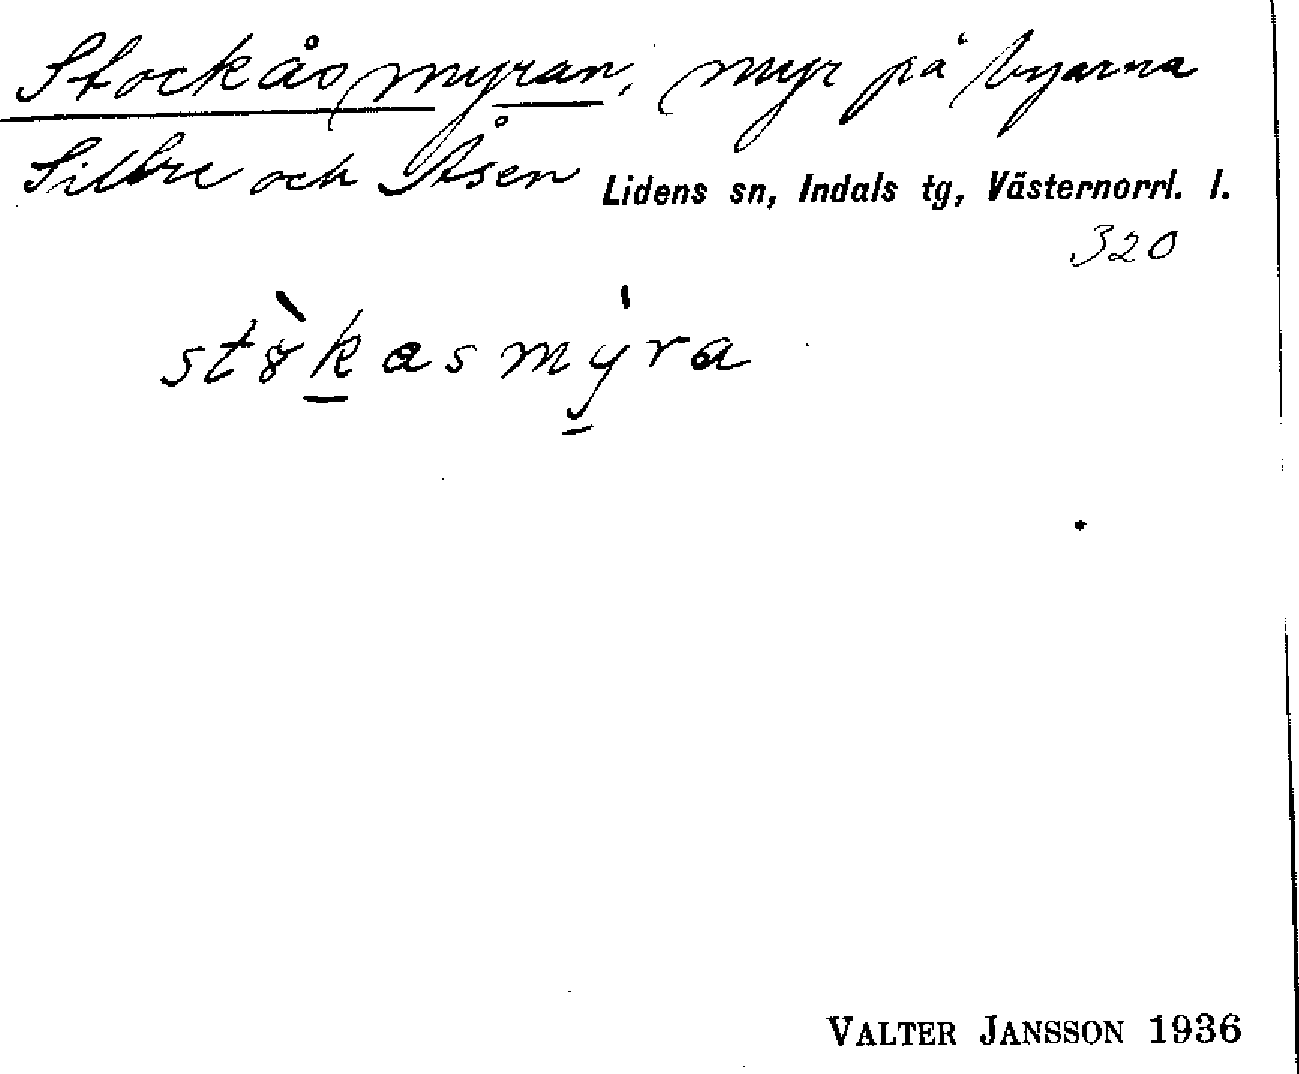 Stockåsmyran, myr på byarna
Sillre och Åsen Lidens sn, Indals tg, Västernorrl. l.
320
stò̀kasmýra
VALTER JANSSON 1936